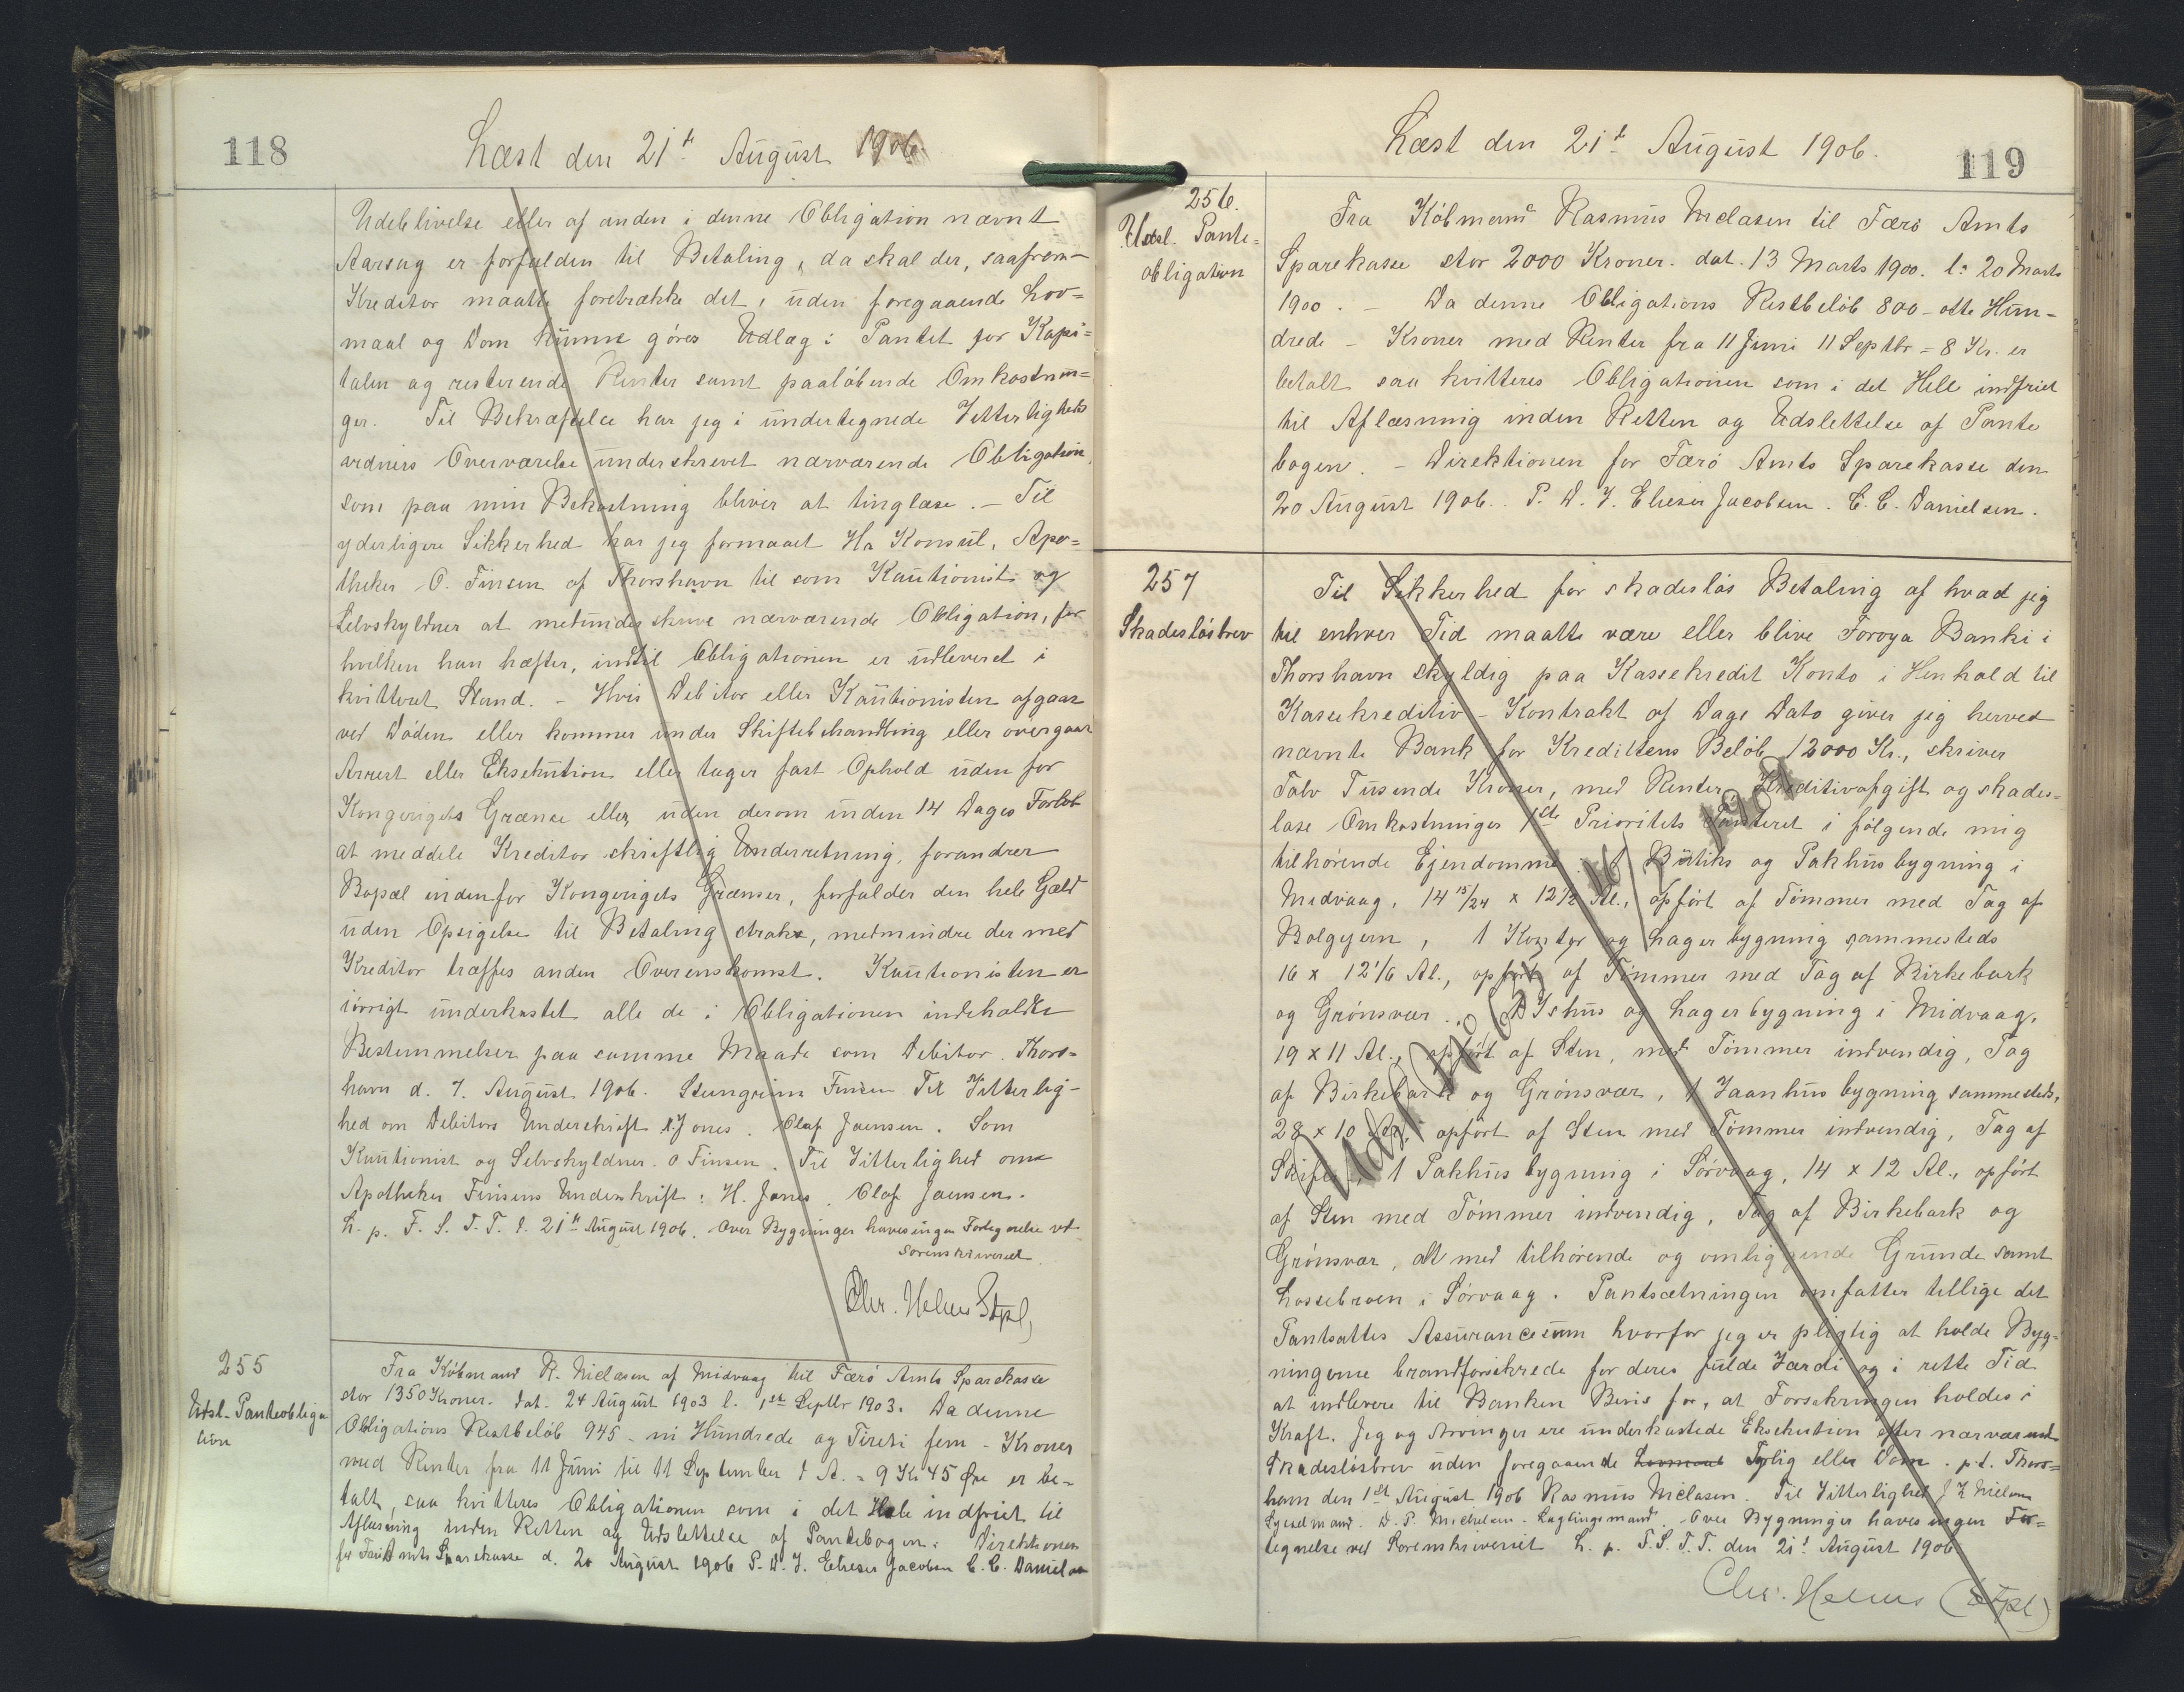 118
Læst den 21de August 1906
Udeblivelse eller af anden i denne Obligation nævnt
Aarsag er forfalden til Betaling, da skal der, saafrem-
Kreditor maatte foretrække det, uden foregaaende Lov=
maal og Dom kunne göres Udlæg i Pantet for Kapi=
talen og resterende Renter samt paalöbende Omkostnin=
ger. Til Bekræftelse har jeg i undertegnede Vitterligheds
vidners Overværelse underskrevet nærværende Obligation,
som paa min Bekostning bliver at tinglæse. - Til
yderligere Sikkerhed har jeg formaaet Hr Konsul, Apo=
theker O. Finsen af Thorshavn til som Kautionist og
Selvskyldner at medunderskrive nærværende Obligation, for
hvilken han hæfter, indtil Obligationen er udleveret i
kvitteret Stand. - Hvis Debitor eller Kautionisten afgaar
ved Döden eller kommer under Skiftebehandling eller overgaar
Arrest eller Eksekution eller tager fast Ophold uden for
Kongerigets Grænse eller uden derom inden 14 Dages Forlöb
at meddele Kreditor skriftlig Underretning, forandrer
Bopæl indenfor Kongerigets Grænser, forfalder den hele Gæld
uden Opsigelse til Betaling straks, medmindre der med
Kreditor træffes anden Overenskomst. Kautionisten er
iövrigt underkastet alle de i Obligationen indeholdte
Bestemmelser paa samme Maade som Debitor. Thors=
havn d. 7. August 1906. Steingrim Finsen Til Vitterlig-
hed om Debitors Underskrift H. Jones. Olaf Joensen. Som
Kautionist og Selvskyldner. O Finsen. Til Vitterlighed om
Apotheker Finsens Underskrift: H. Jones. Olaf Joensen.
L. p. F. S. T. T. d. 21de August 1906. Over Bygninger haves ingen Fortegnelse vd
Sorenskriveriet
Chr. Helms Stpl,
255
Udsl. Panteobliga
tion
Fra Köbmand R. Niclasen af Midvaag til Færö Amts Sparekasse
stor 1350 Kroner. dat. 24 August 1903 l. 1ste Septbr 1903. Da denne
Obligations Restbelöb 945 - ni Hundrede og Fireti fem - Kroner
med Renter fra 11 Juni til 11 September d A. = 9 Kr 45 Öre er be-
talt, saa kvitteres Obligationen som i det Hele indfriet til
Aflæsning inden Retten og Udslettelse af Pantebogen. Direktionen
for Færö Amts Sparekasse d. 20 August 1906 P. D. V. Elieser Jacobsen C. C. Danielsen
Læst den 21de August 1906.
119
256.
Udsl. Pante=
obligation
Fra Köbmand Rasmus Niclasen til Færö Amts
Sparekasse stor 2000 Kroner. dat. 13 Marts 1900. l: 20 Marts
1900. - Da denne Obligations Restbelöb 800 - otte Hun-
drede - Kroner med Renter fra 11 Juni 11 Septbr = 8 Kr. er
betalt saa kvitteres Obligationen som i det Hele indfriet
til Aflæsning inden Retten og Udslettelse af Pante
bogen. - Direktionen for Færö Amts Sparekasse den
20 August 1906. P. D. V. Elieser Jacobsen. C. C. Danielsen.
257
Skadeslösbrev
Til Sikkerhed for skadeslös Betaling af hvad jeg
til enhver Tid maatte være eller blive Föroya Banki i
Thorshavn skyldig paa Kassekredit Konto i Henhold til
Kassekreditiv-Kontrakt af Dags Dato giver jeg herved
nævnte Bank for Kredittens Belöb 12000 Kr., skriver
Tolv Tusende Kroner, med Renter, Kreditivafgift og skades-
löse Omkostninger 1ste Prioritets Panteret i fölgende mig
tilhörende Ejendomme: 1 Butiks og Pakhusbygning i
Midvaag, 14 15/24 x 12½ Al., opfört af Tömmer med Tag af
Bolgejern, 1 Kontor og Lagerbygning sammesteds
16 x 12 1/6 Al., opfört af Tömmer med Tag af Birkebark
og Grönsvær., 1 Ishus og Lagerbygning i Midvaag,
19 x 11 Al., opfört af Sten, med Tömmer indvendig, Tag
af Birkebark og Grönsvær, 1 Vaanhusbygning sammesteds,
28 x 10 Al., opfört af Sten med Tömmer indvendig, Tag af
Skifer, 1 Pakhusbygning i Sörvaag, 14 x 12 Al., opfört
af Sten med Tömmer indvendig, Tag af Birkebark og
Grönsvær, alt med tilhörende og omliggende Grunde samt
Lossebroen i Sörvaag. Pantsætningen omfatter tillige det
Pantsattes Assurancesum hvorfor jeg er pligtig at holde Byg=
ningerne brandforsikrede for deres fulde Værdi og i rette Tid
at indlevere til Banken Bevis for, at Forsikringen holdes i
Kraft. Jeg og Arvinger ere underkastede Eksekution efter nærværende
Skadeslösbrev uden foregaaende Lovmaal Forlig eller Dom. p.t. Thors=
havn den 1ste August 1906 Rasmus Niclasen. Til Vitterlighed Nielsen
Sysselmand. D. P. Michelsen. Lagtingsmand. Over Bygninger haves ingen For=
tegnelse ved Sorenskriveriet L. p. F. S. T. T. den 21' August 1906
Chr. Helms (Stpl)